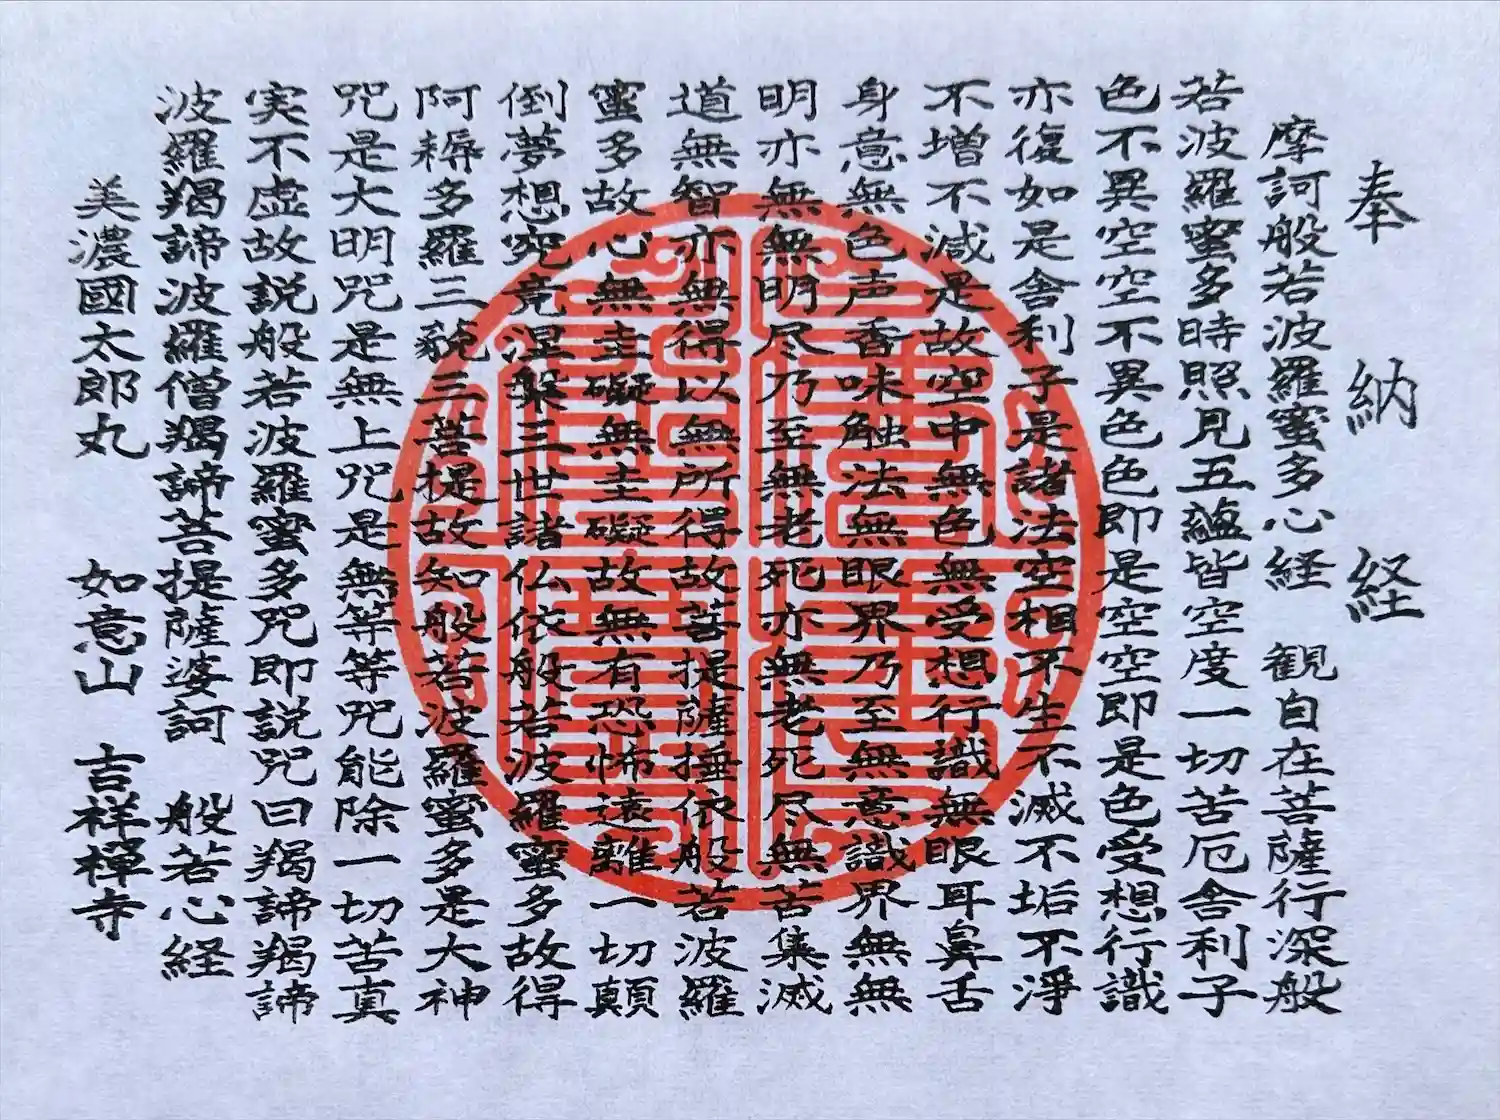 奉納経
摩訶般若波羅蜜多心経 観自在菩薩行深般
若波羅蜜多時照見五蘊皆空度一切苦厄舎利子
色不異空空不異色色即是空空即是色受想行識
亦復如是舎利子是諸法空相不生不滅不垢不淨
不増不減是故空中無色無受想行識無眼耳鼻舌
身意無色声香味触法無眼界乃至無意識界無無
明亦無無明尽乃至無老死亦無老死尽無苦集滅
道無智亦無得以無所得故菩提薩埵依般若波羅
蜜多故心無圭礙無圭礙故無有恐怖遠離一切顛
倒夢想究竟涅槃三世諸仏依般若波羅蜜多故得
阿耨多羅三藐三菩提故知般若波羅蜜多是大神
咒是大明咒是無上咒是無等等咒能除一切苦真
実不虚故説般若波羅蜜多咒即説咒曰羯諦羯諦
波羅羯諦波羅僧羯諦菩提薩婆訶 般若心経
美濃國太郎丸 如意山 吉祥禅寺